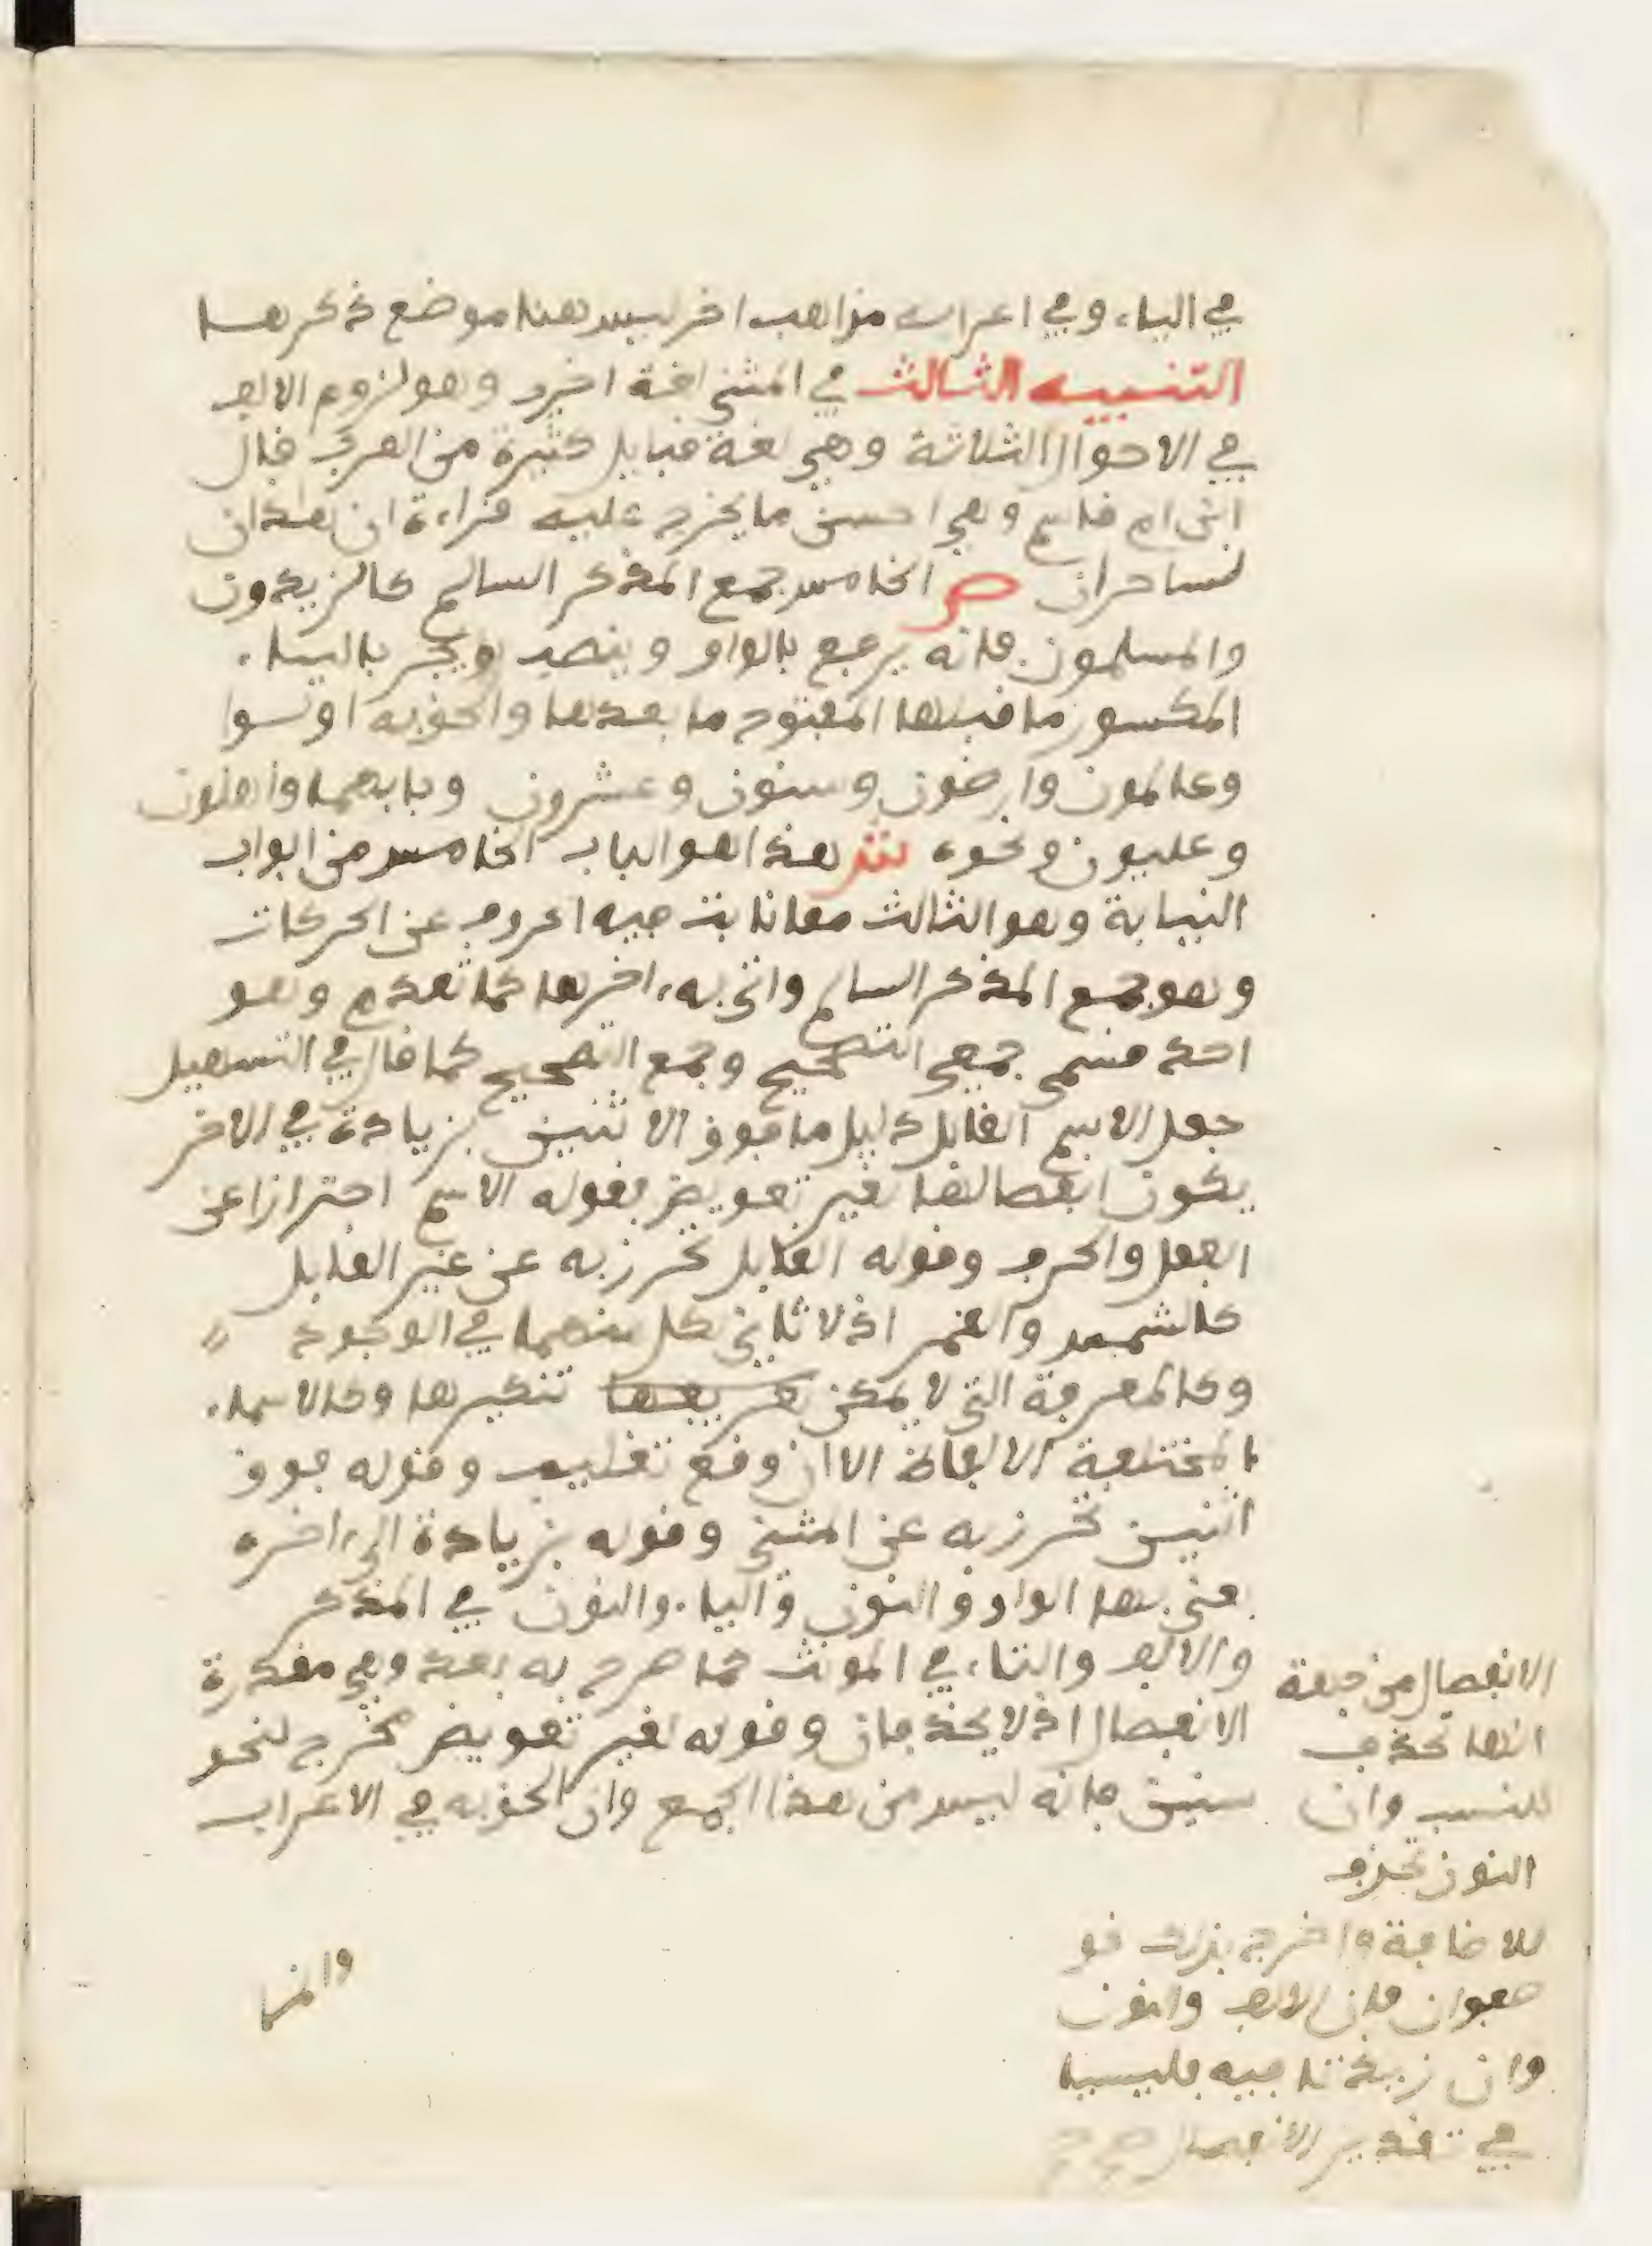 في الياء وفي اعرابه مذاهب اخر ليس هنا موضع ذكرها
التنبيه الثالث في المثنى لغة اخرى وهو لزوم الالف
في الاحوال الثلاثة وهي لغة قبايل كثيرة من العرب قال
ابن ام قاسم وهي احسن ما يخرج عليه قراءة ان هذان
لساحران ص الخامس جمع المذكر السالم كالزيدون
والمسلمون فانه يرفع بالواو وينصب ويجر بالياء
المكسور ما قبلها المفتوح ما بعدها والحق به اولوا
وعالمون وارضون وسنون وعشرون وبابهما واهلون
وعليون ونحوه ش هذا هو الباب الخامس من ابواب
النيابة وهو الثالث مما نابت فيه الحروف عن الحركات
وهو جمع المذكر السالم واتى به اخرها كما تقدم وهو
احد قسمي جمعي التصحيح وجمع التصحيح كما قال في التسهيل
جعل الاسم القابل دليل ما فوق الاثنين بزيادة في الاخر
يكون انفصالها لغير تعويض فقوله الاسم احترازا عن
الفعل والحرف وقوله القابل تحرز به عن غير القابل
كالشمس والقمر اذ لا ثاني لكل منهما في الوجود
وكالمعرفة التي لا يمكن تعريفها تنكيرها وكالاسماء
المختلفة الالفاظ الا ان وقع تغليب وقوله فوق
اثنين تحرز به عن المثنى وقوله بزيادة الى اخره
عنى بها الواو والنون والياء والنون في المذكر
والالف والتاء في المونث كما صرح به بعد وهي مقدرة
الانفصال اذ لا يحذفان وقوله لغير تعويض مخرج لنحو
سنين فانه ليس من هذا الجمع وان الحق به في الاعراب
الانفصال من جهة
انها تحذف
للنسب وان
النون تحذف
للاضافة واخرج بذلك نحو
صفوان فان الالف والنون
وان زيدتا فيه فليسا
في تقدير الانفصال صح
والمر